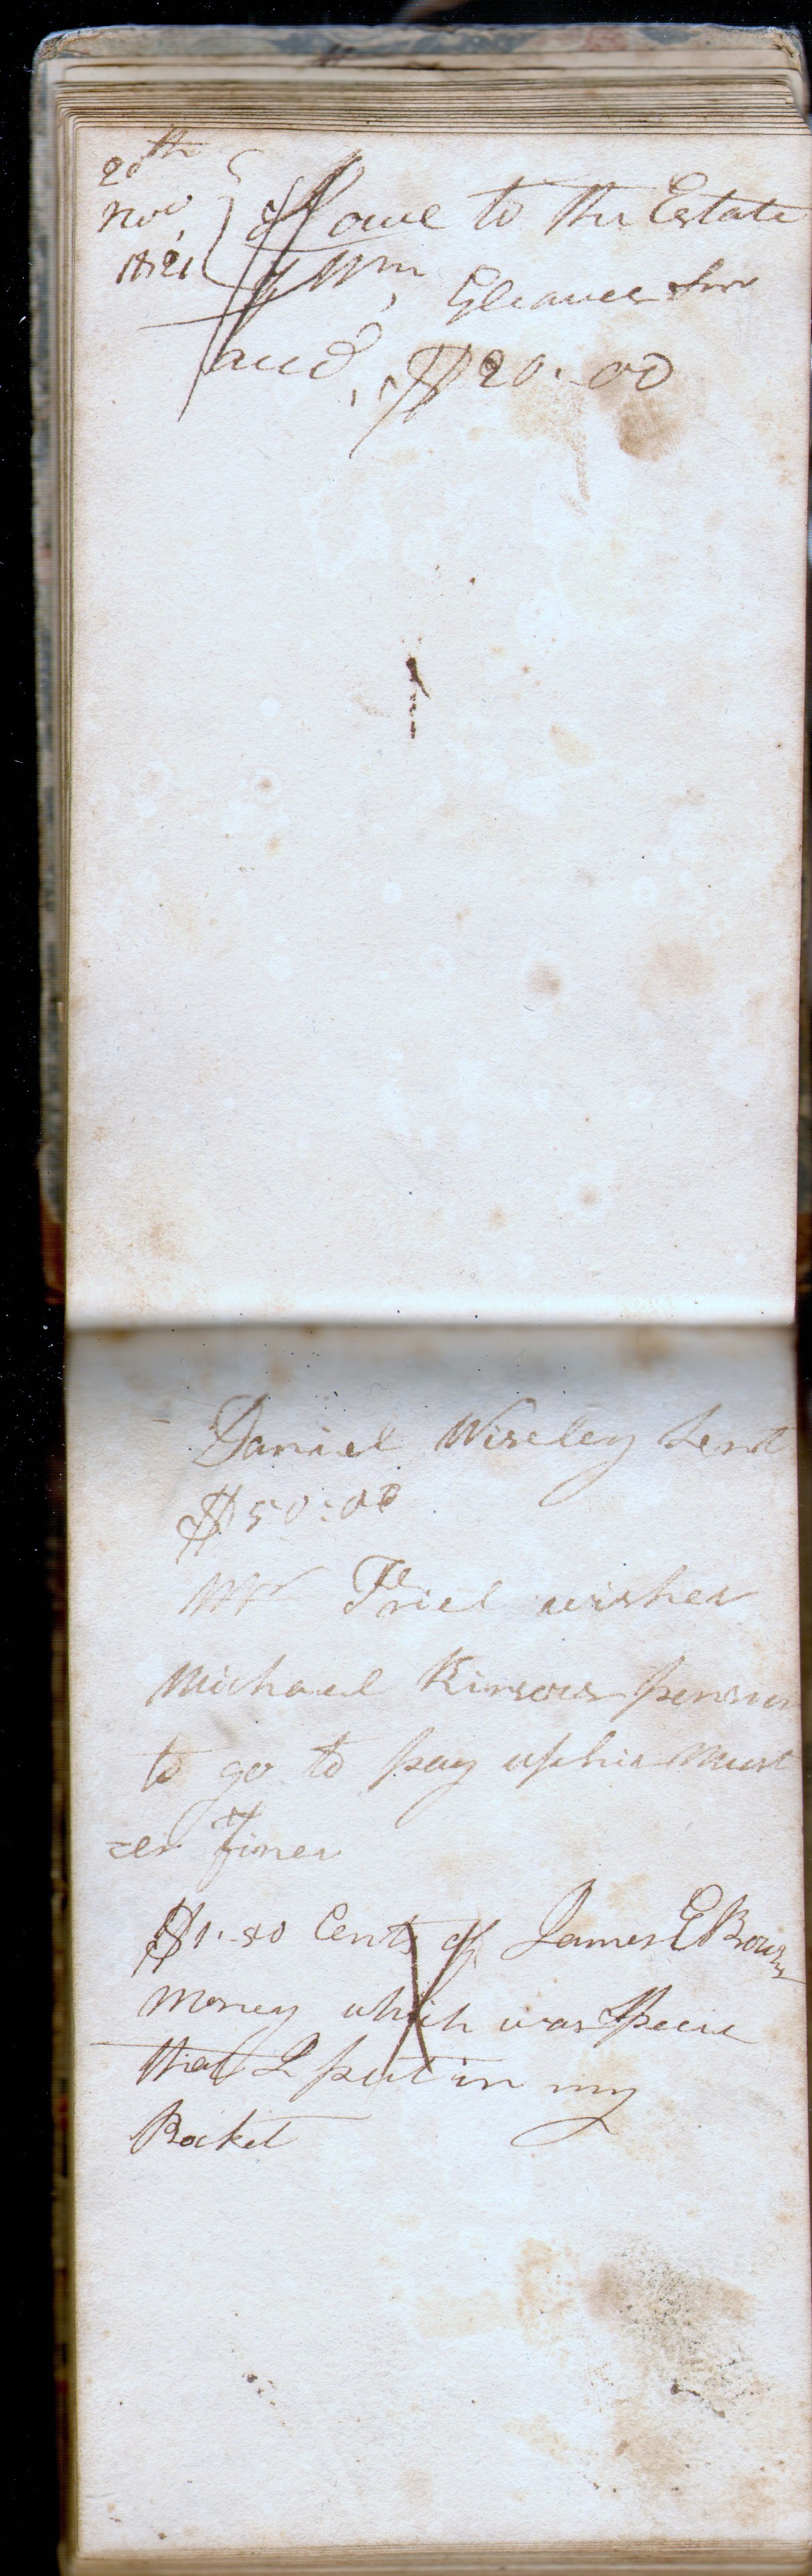 20th
Nov,
1821
I owe to the Estate
of Wm, Gleaves
decd, $20.00
Daniel Wiseley Sent
$50:00
Mr Friel wishes
Michael Kinsers
to go to pay up his Must
=er fines
$1.80 Cents of James E Bourn
money which was Specie
that I put in my
Pocket